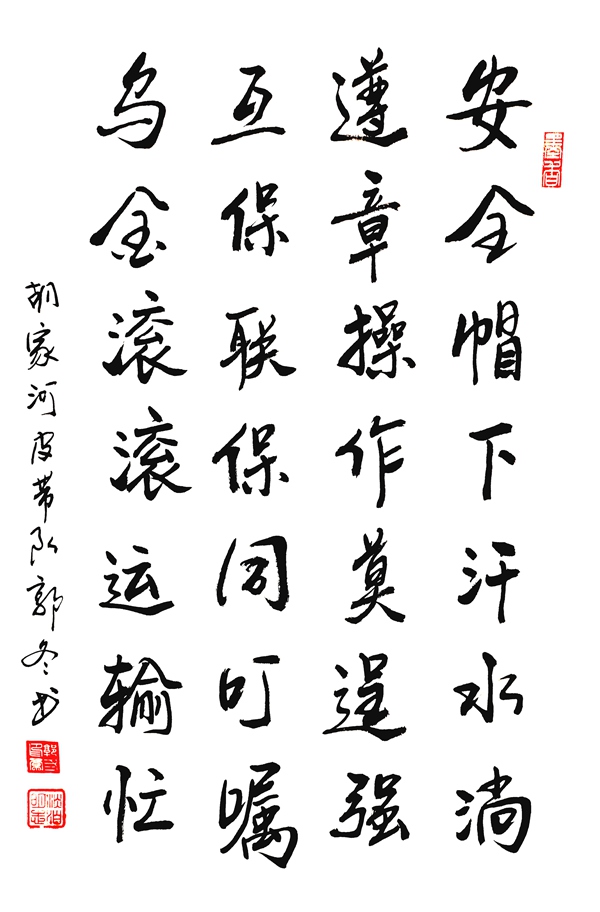 安全帽下汗水淌
遵章操作莫逞强
互保联保同叮嘱
乌金滚滚运输忙
胡家河皮带队郭冬书
墨香